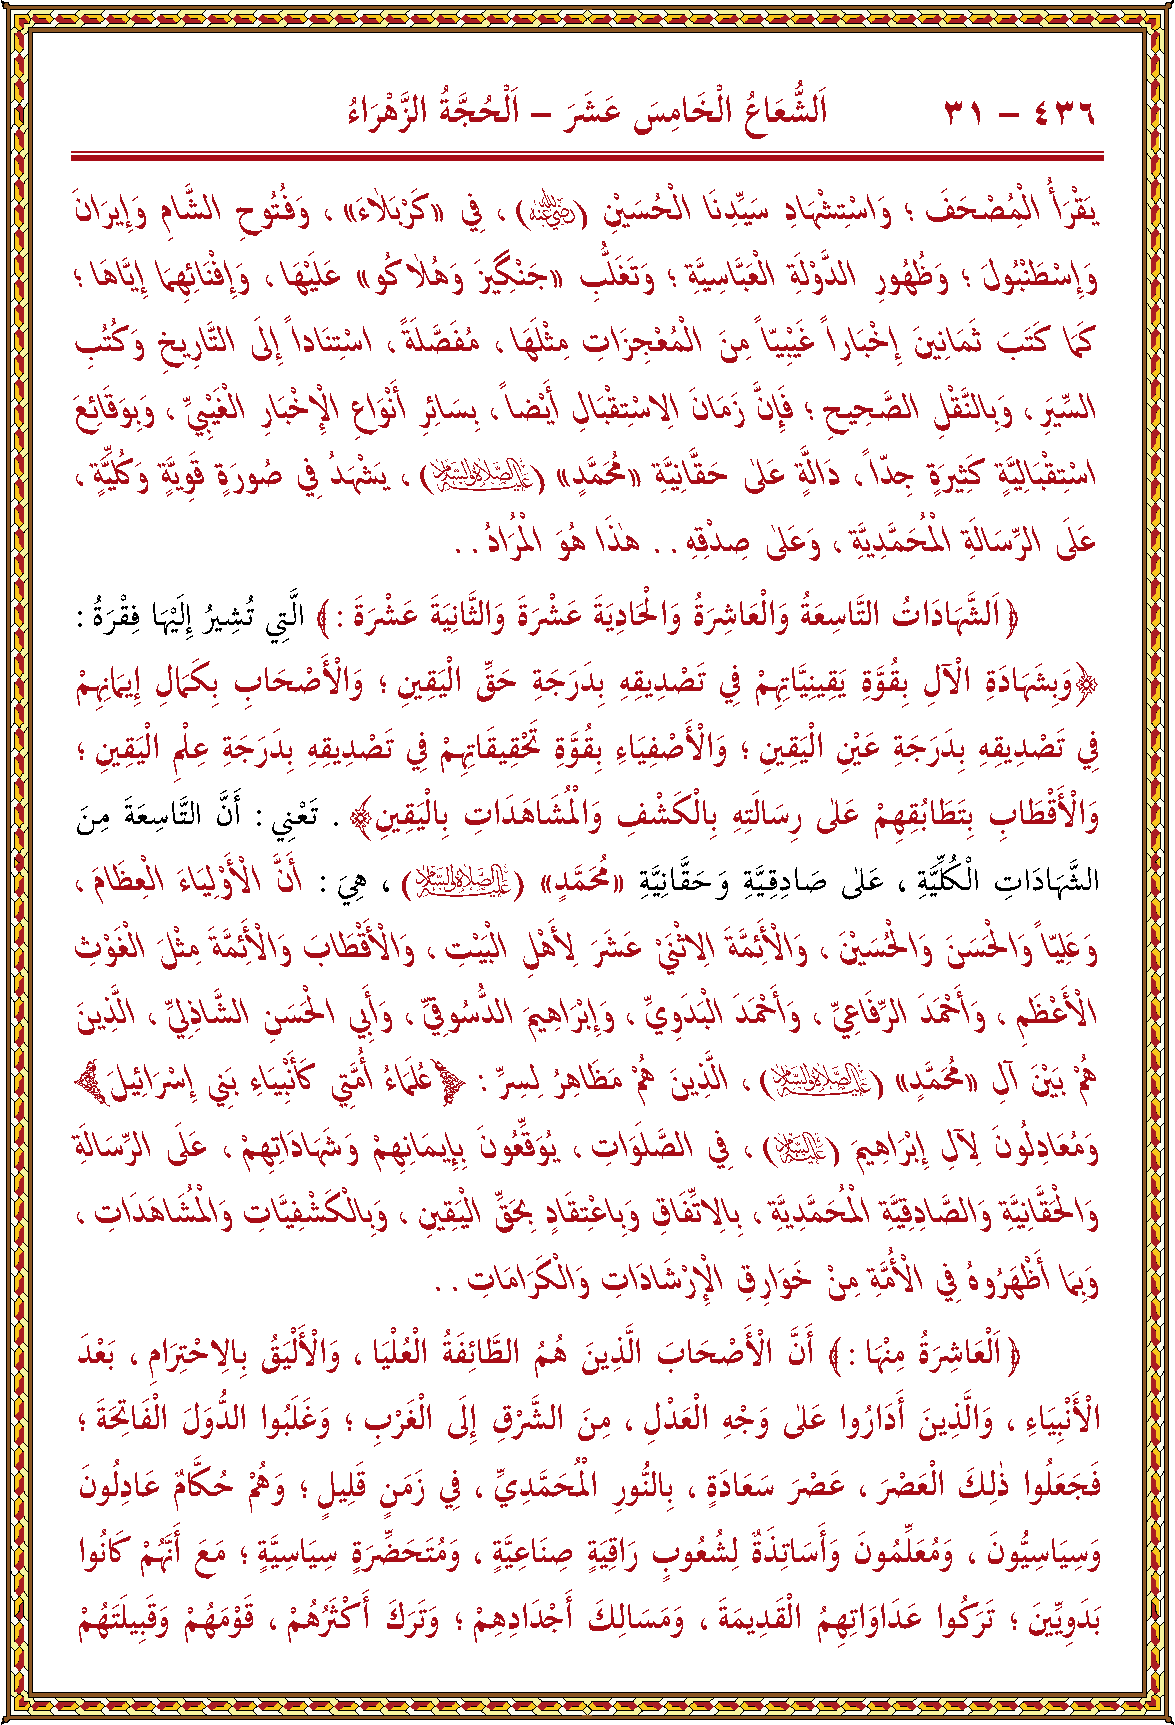 ٤٣٦ – ٣١ اَلشُّعَاعُ الْخَامِسَ عَشَرَ – اَلْحُجَّةُ الزَّهْرَاءُ
يَقْرَأُ الْمُصْحَفَ ؛ وَاسْتِشْهَادِ سَيِّدِنَا الْحُسَيْنِ (رضي الله عنه) ، فِي «كَرْبَلَٓاءَ» ، وَفُتُوحِ الشَّامِ وَإِيرَانَ
وَإِسْطَنْبُولَ ؛ وَظُهُورِ الدَّوْلَةِ الْعَبَّاسِيَّةِ ؛ وَتَغَلُّبِ «جَنْگِيزَ وَهُلٰاكُو» عَلَيْهَا ، وَإِفْنَائِهِمَا إِيَّاهَا ؛
كَمَا كَتَبَ ثَمَانِينَ إِخْبَاراً غَيْبِيّاً مِنَ الْمُعْجِزَاتِ مِثْلَهَا ، مُفَصَّلَةً ، اسْتِنَاداً إِلَى التَّارِيخِ وَكُتُبِ
السِّيَرِ ، وَبِالنَّقْلِ الصَّحِيحِ ؛ فَإِنَّ زَمَانَ الِاسْتِقْبَالِ أَيْضاً ، بِسَائِرِ أَنْوَاعِ الْإِخْبَارِ الْغَيْبِيِّ ، وَبِوَقَائِعَ
اسْتِقْبَالِيَّةٍ كَثِيرَةٍ جِدّاً ، دَالَّةٍ عَلٰى حَقَّانِيَّةِ «مُحَمَّدٍ» (عليه الصلاة والسلام) ، يَشْهَدُ فِي صُورَةٍ قَوِيَّةٍ وَكُلِّيَّةٍ ،
عَلَى الرِّسَالَةِ الْمُحَمَّدِيَّةِ ، وَعَلٰى صِدْقِهِ . . هٰذَا هُوَ الْمُرَادُ . .
﴿اَلشَّهَادَاتُ التَّاسِعَةُ وَالْعَاشِرَةُ وَالْحَادِيَةَ عَشْرَةَ وَالثَّانِيَةَ عَشْرَةَ :﴾ الَّتِي تُشِيرُ إِلَيْهَا فِقْرَةُ :
﴿وَبِشَهَادَةِ الْآلِ بِقُوَّةِ يَقِينِيَّاتِهِمْ فِي تَصْدِيقِهِ بِدَرَجَةِ حَقِّ الْيَقِينِ ؛ وَالْأَصْحَابِ بِكَمَالِ إِيمَانِهِمْ
فِي تَصْدِيقِهِ بِدَرَجَةِ عَيْنِ الْيَقِينِ ؛ وَالْأَصْفِيَاءِ بِقُوَّةِ تَحْقِيقَاتِهِمْ فِي تَصْدِيقِهِ بِدَرَجَةِ عِلْمِ الْيَقِينِ ؛
وَالْأَقْطَابِ بِتَطَابُقِهِمْ عَلٰى رِسَالَتِهِ بِالْكَشْفِ وَالْمُشَاهَدَاتِ بِالْيَقِينِ﴾ . تَعْنِي : أَنَّ التَّاسِعَةَ مِنَ
الشَّهَادَاتِ الْكُلِّيَّةِ ، عَلٰى صَادِقِيَّةِ وَحَقَّانِيَّةِ «مُحَمَّدٍ» (عليه الصلاة والسلام) ، هِيَ : أَنَّ الْأَوْلِيَاءَ الْعِظَامَ ،
وَعَلِيّاً وَالْحَسَنَ وَالْحُسَيْنَ ، وَالْأَئِمَّةَ الِاثْنَيْ عَشَرَ لِأَهْلِ الْبَيْتِ ، وَالْأَقْطَابَ وَالْأَئِمَّةَ مِثْلَ الْغَوْثِ
الْأَعْظَمِ ، وَأَحْمَدَ الرِّفَاعِيِّ ، وَأَحْمَدَ الْبَدَوِيِّ ، وَإِبْرَاهِيمَ الدُّسُوقِيِّ ، وَأَبِي الْحَسَنِ الشَّاذِلِيِّ ، الَّذِينَ
هُمْ بَيْنَ آلِ «مُحَمَّدٍ» (عليه الصلاة والسلام) ، الَّذِينَ هُمْ مَظَاهِرُ لِسِرِّ : ﴿عُلَمَاءُ أُمَّتِي كَأَنْبِيَاءِ بَنِي إِسْرَائِيلَ﴾
وَمُعَادِلُونَ لِآلِ إِبْرَاهِيمَ (عليه السلام) ، فِي الصَّلَوَاتِ ، يُوَقِّعُونَ بِإِيمَانِهِمْ وَشَهَادَاتِهِمْ ، عَلَى الرِّسَالَةِ
وَالْحَقَّانِيَّةِ وَالصَّادِقِيَّةِ الْمُحَمَّدِيَّةِ ، بِالِاتِّفَاقِ وَبِاعْتِقَادٍ بِحَقِّ الْيَقِينِ ، وَبِالْكَشْفِيَّاتِ وَالْمُشَاهَدَاتِ ،
وَبِمَا أَظْهَرُوهُ فِي الْأُمَّةِ مِنْ خَوَارِقِ الْإِرْشَادَاتِ وَالْكَرَامَاتِ . .
﴿اَلْعَاشِرَةُ مِنْهَا :﴾ أَنَّ الْأَصْحَابَ الَّذِينَ هُمُ الطَّائِفَةُ الْعُلْيَا ، وَالْأَلْيَقُ بِالِاحْتِرَامِ ، بَعْدَ
الْأَنْبِيَاءِ ، وَالَّذِينَ أَدَارُوا عَلٰى وَجْهِ الْعَدْلِ ، مِنَ الشَّرْقِ إِلَى الْغَرْبِ ؛ وَغَلَبُوا الدُّوَلَ الْفَاتِحَةَ ؛
فَجَعَلُوا ذٰلِكَ الْعَصْرَ ، عَصْرَ سَعَادَةٍ ، بِالنُّورِ الْمُحَمَّدِيِّ ، فِي زَمَنٍ قَلِيلٍ ؛ وَهُمْ حُكَّامٌ عَادِلُونَ
وَسِيَاسِيُّونَ ، وَمُعَلِّمُونَ وَأَسَاتِذَةٌ لِشُعُوبٍ رَاقِيَةٍ صِنَاعِيَّةٍ ، وَمُتَحَضِّرَةٍ سِيَاسِيَّةٍ ؛ مَعَ أَنَّهُمْ كَانُوا
بَدَوِيِّينَ ؛ تَرَكُوا عَدَاوَاتِهِمُ الْقَدِيمَةَ ، وَمَسَالِكَ أَجْدَادِهِمْ ؛ وَتَرَكَ أَكْثَرُهُمْ ، قَوْمَهُمْ وَقَبِيلَتَهُمْ